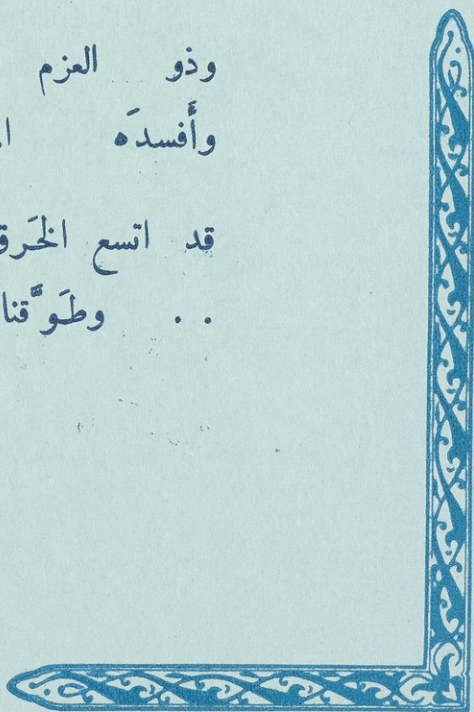 وذو العزم
وأَفسدَه
قد اتسع الخَرق
. . وطَوَّقنا